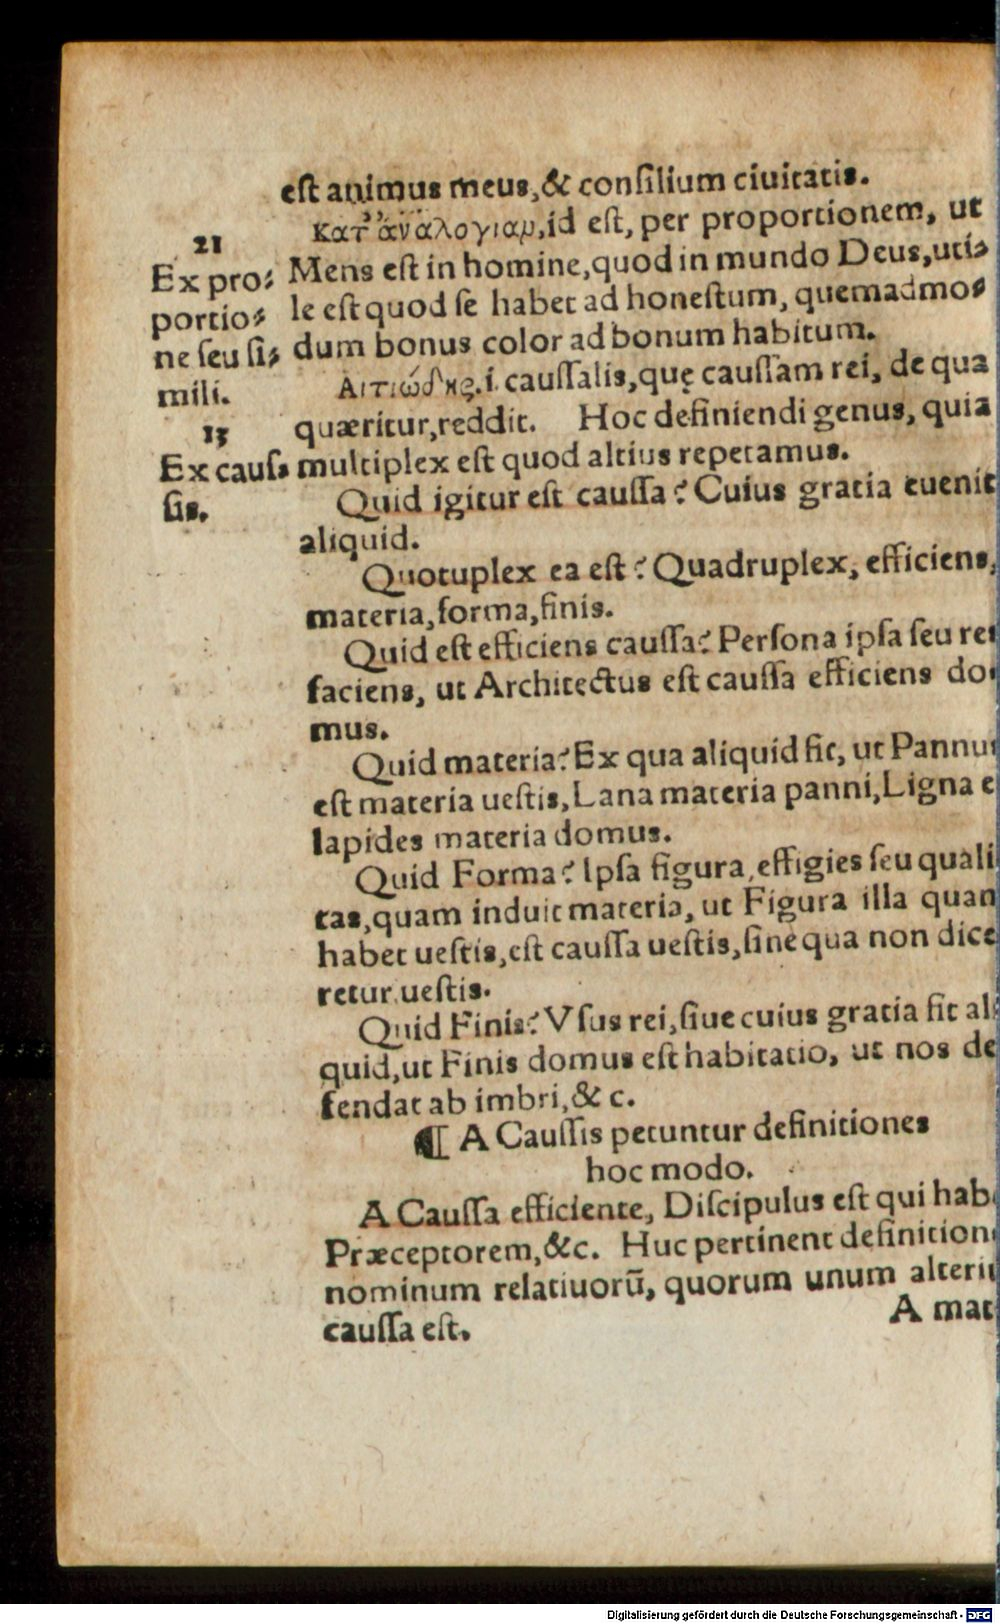 est animus meus, & consilium ciuitatis.
Κατ' ἀναλογιαμ, id est, per proportionem, ut
Mens est in homine, quod in mundo Deus, uti⸗
le est quod se habet ad honestum, quemadmo⸗
dum bonus color ad bonum habitum.
21
Ex pro⸗
portio⸗
ne seu si⸗
mili.
Αιτιώδης .i. caussalis, quę caussam rei, de qua
quæritur, reddit. Hoc definiendi genus, quia
multiplex est quod altius repetamus.
15
Ex caus⸗
sis.
Quid igitur est caussa? Cuius gratia euenit
aliquid.
Quotuplex ea est? Quadruplex, efficiens,
materia, forma, finis.
Quid est efficiens caussa? Persona ipsa seu res
faciens, ut Architectus est caussa efficiens do⸗
mus.
Quid materia? Ex qua aliquid fit, ut Pannus
est materia uestis, Lana materia panni, Ligna e
lapides materia domus.
Quid Forma? Ipsa figura, effigies seu quali
tas, quam induit materia, ut Figura illa quan
habet uestis, est caussa uestis, sine qua non dice
retur uestis.
Quid Finis? Vsus rei, siue cuius gratia fit ali
quid, ut Finis domus est habitatio, ut nos de
fendat ab imbri, & c.
¶ A Caussis petuntur definitiones
hoc modo.
A Caussa efficiente, Discipulus est qui hab
Præceptorem, &c. Huc pertinent definition
nominum relatiuorū, quorum unum alteri
caussa est.
A mat
Digitalisierung gefördert durch die Deutsche Forschungsgemeinschaft - DFG